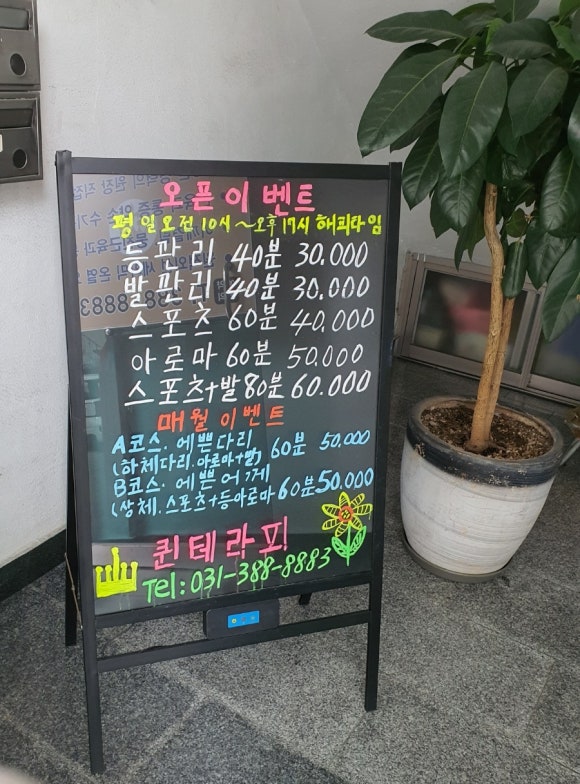 오픈이벤트
평일오전10시~오후17시해피타임
등관리 40분 30.000
발관리 40분 30.000
스포츠 60분 40.000
아로마 60분 50.000
스포츠+발 80분 60.000
매월이벤트
A코스. 예쁜다리
(하체다리. 아로마+발) 60분 50,000
B코스. 예쁜어깨
(상체. 스포츠+등아로마 60분 50.000
퀸테라피!
Tel: 031-388-8883